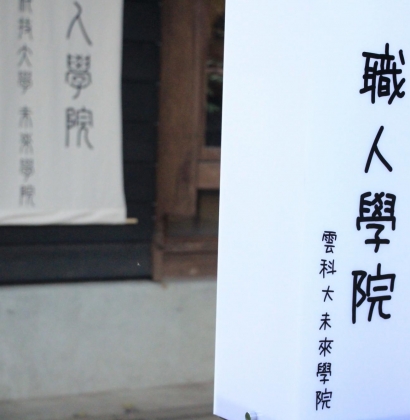 職人學院
雲科大未來學院
人學院
科技大學 未來學院